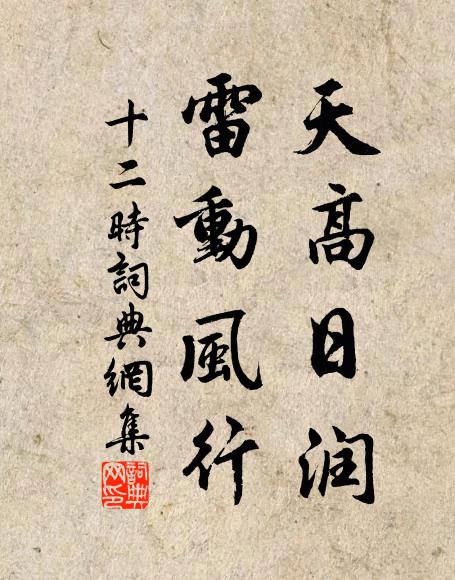 天高日润
雷動風行
十二時詞典網集
詞典網印